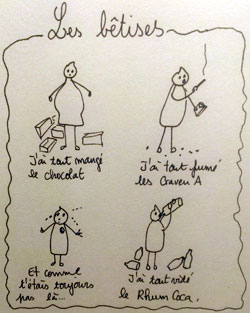 Les bêtises
J'ai tout mangé
le chocolat
J'ai tout fumé
les Craven A
Et comme
t'étais toujours
pas là...
J'ai tout vidé
le Rhum Coca.